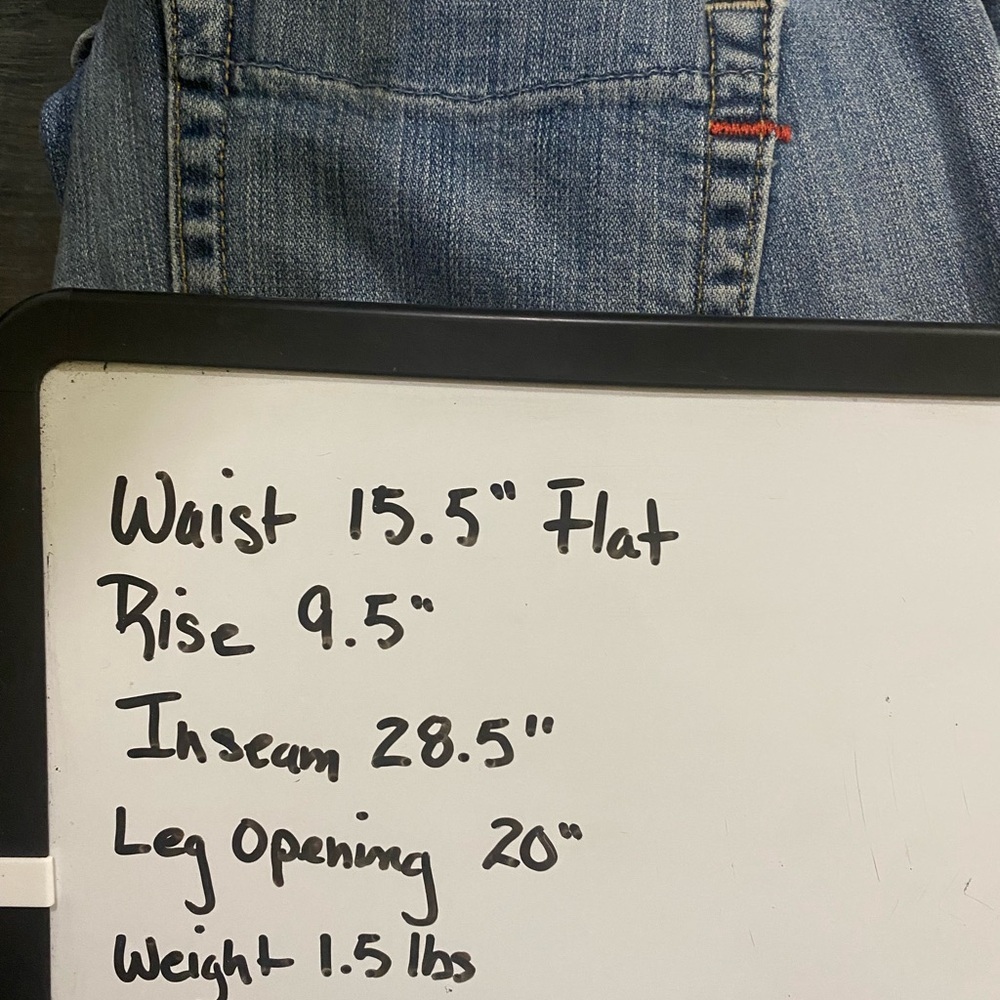 Waist 15.5" Flat
Rise 9.5"
Inseam 28.5"
Leg Opening 20"
Weight 1.5 lbs